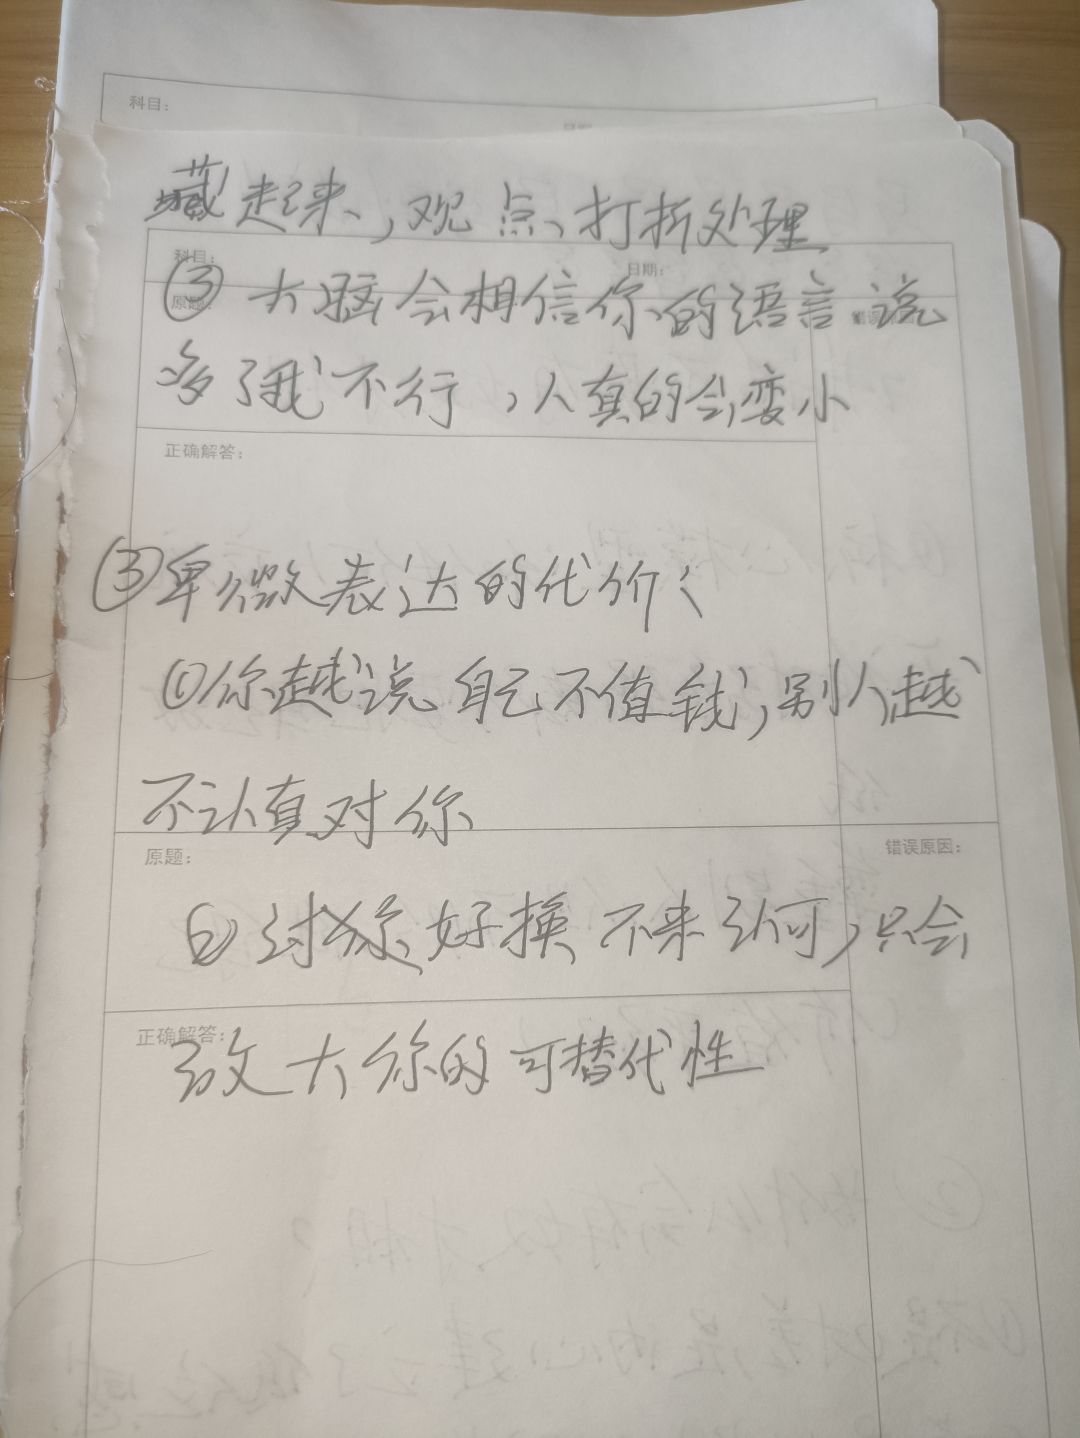 科目：
藏起来，观点打折处理
科目： 日期：
③ 大脑会相信你的语言 说
原题：
多了我不行，人真的会变小
正确解答：
③卑微表达的代价：
①你越说自己不值钱，别人越
不认真对你
原题： 错误原因：
② 讨好换不来认可，只会
正确解答：
放大你的可替代性